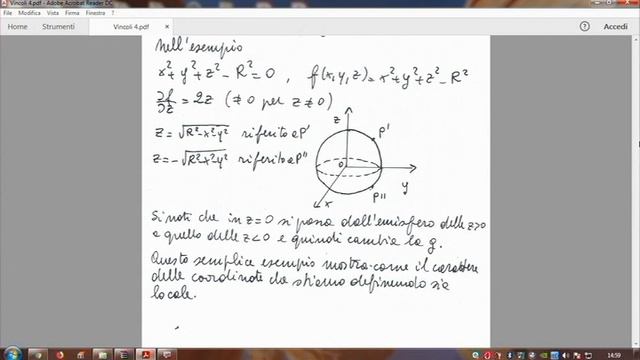 Vincoli 4.pdf - Adobe Acrobat Reader DC
File Modifica Vista Firma Finestra ?
Home Strumenti Vincoli 4.pdf × Accedi
nell'esempio
x²+y²+z²-R²=0 , f(x,y,z)=x²+y²+z²-R²
∂f/∂z = 2z (≠0 per z≠0)
z=√R²-x²-y² riferito a P'
z=-√R²-x²-y² riferito a P"
z
P'
O
y
P"
x
Si noti che in z=0 si passa dall'emisfero delle z>0
a quello delle z<0 e quindi cambia la g.
Questo semplice esempio mostra come il carattere
delle coordinate che stiamo definendo sia
locale.
14:59